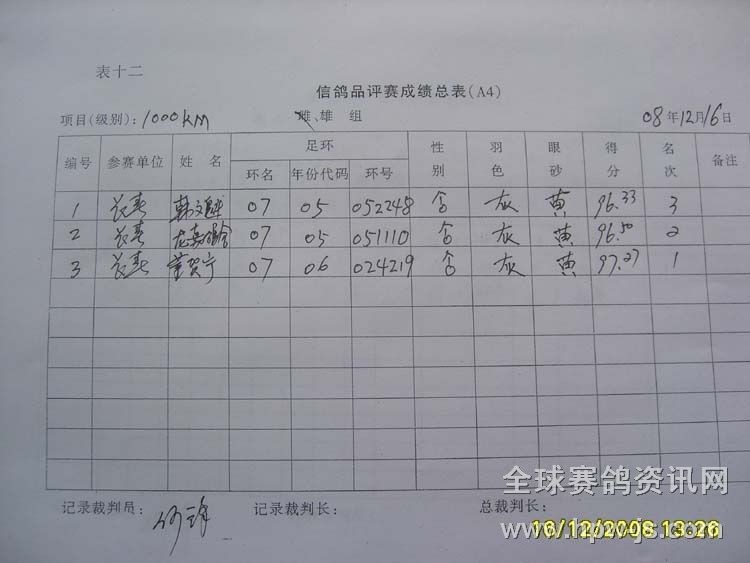 表十二
信鸽品评赛成绩总表(A4)
项目(级别):1000KM 雌、雄 组 08年12月16日
编号 参赛单位 姓 名 足环 性别 羽色 眼砂 得分 名次 备注
环名 年份代码 环号
1 长春 韩文 07 05 052248 舍 灰 黄 96.33 3
2 长春 07 05 051110 舍 灰 黄 96.50 2
3 长春 董贺宁 07 06 024219 舍 灰 黄 97.27 1
全球赛鸽资讯网
记录裁判员: 记录裁判长: 总裁判长:
16/12/2008 13:26